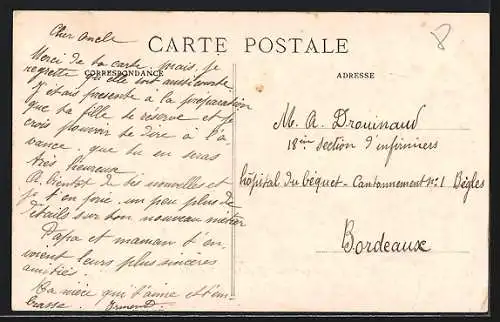 CARTE POSTALE
CORRESPONDANCE
ADRESSE
Cher oncle
Merci de ta carte, mais je
regrette qu'elle soit aussi courte
J'étais présente a la préparation
que ta fille te reserve et je
crois pouvoir te dire à l'a-
vance, que tu en seras
très heureux
A bientôt de tes nouvelles et
je t'en prie, un peu plus de
détails sur ton nouveau métier
Papa et maman t'en-
voient leurs plus sincères
amitiés.
Ta nièce qui t'aime et t'em-
brasse.
M. A. Drouinaud
18ème section d'infirmiers
hôpital du béquet - Cantonnement n°1 Bègles
Bordeaux